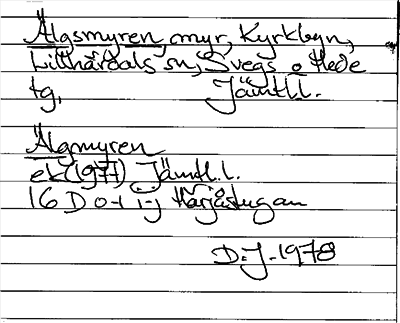 Älgsmyren, myr, Kyrkbyn,
Lillhärdals sn, Svegs o Hede
tg, Jämtl.l.
Älgmyren
ek (1971) Jämtl.l.
16 D o-j i-j Härjåstugan
D.J. 1978